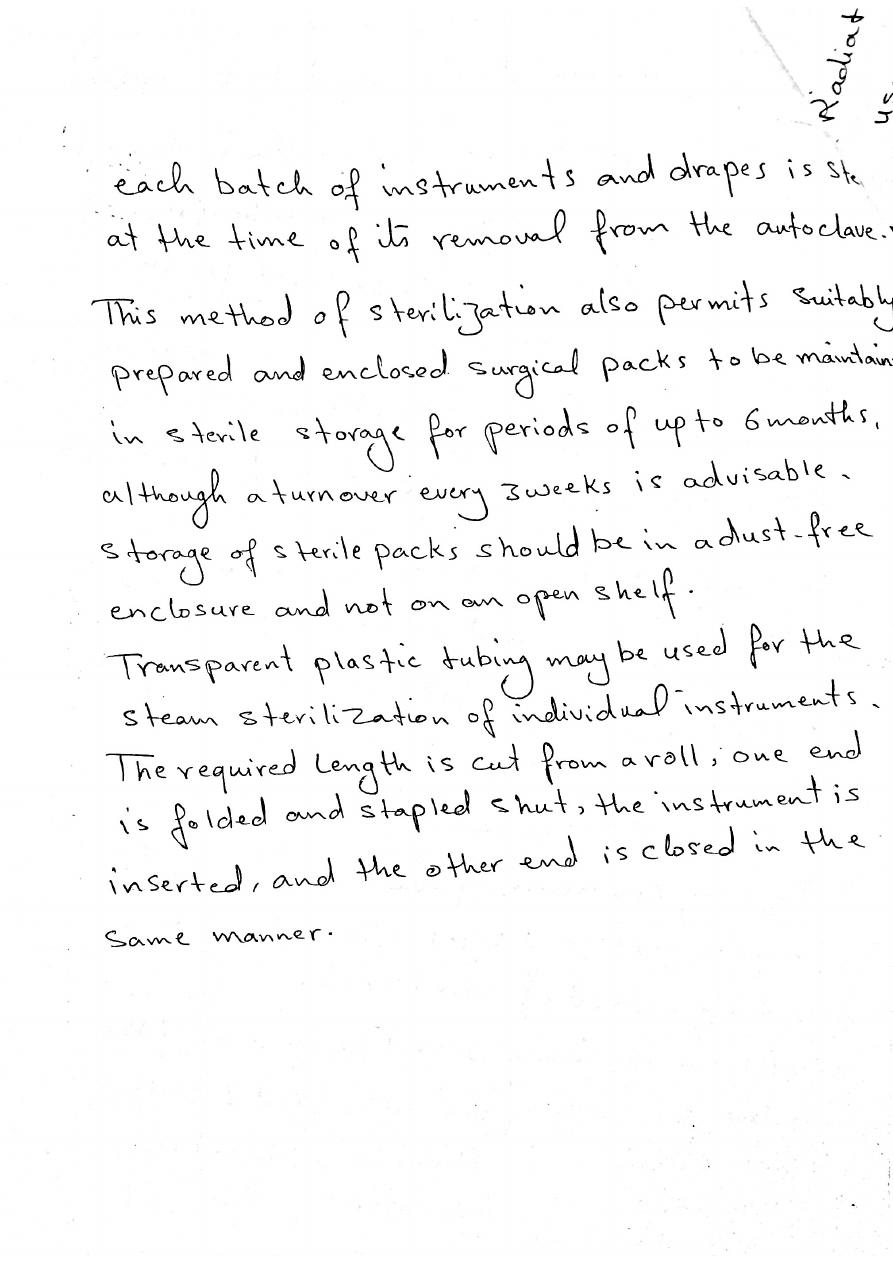 Radiat
us
each batch of instruments and drapes is ste
at the time of its removal from the autoclave.
This method of sterilization also permits suitably
prepared and enclosed surgical packs to be maintain
in sterile storage for periods of up to 6 months,
although a turnover every 3 weeks is advisable.
storage of sterile packs should be in a dust-free
enclosure and not on an open shelf.
Transparent plastic tubing may be used for the
steam sterilization of individual instruments.
The required Length is cut from a roll, one end
is folded and stapled shut, the instrument is
inserted, and the other end is closed in the
same manner.